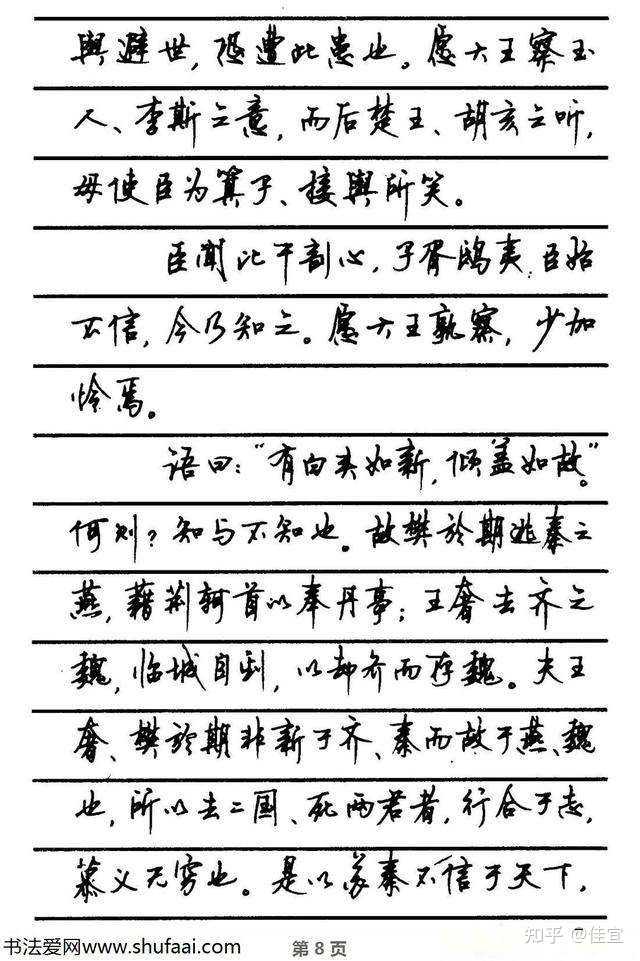 舆避世，恐遭此患也。愿大王察玉
人、李斯之意，而后楚王、胡亥之听，
毋使臣为箕子、接舆所笑。
臣闻比干剖心，子胥鸱夷，臣始
不信，今乃知之。愿大王孰察，少加
怜焉。
语曰：“有白头如新，倾盖如故”。
何则？知与不知也。故樊於期逃秦之
燕，藉荆轲首以奉丹事；王奢去齐之
魏，临城自刭，以却齐而存魏。夫王
奢、樊於期非新于齐、秦而故于燕、魏
也，所以去二国、死两君者，行合于志，
慕义无穷也。是以苏秦不信于天下，
书法爱网www.shufaai.com
第 8 页
知乎 @佳宜